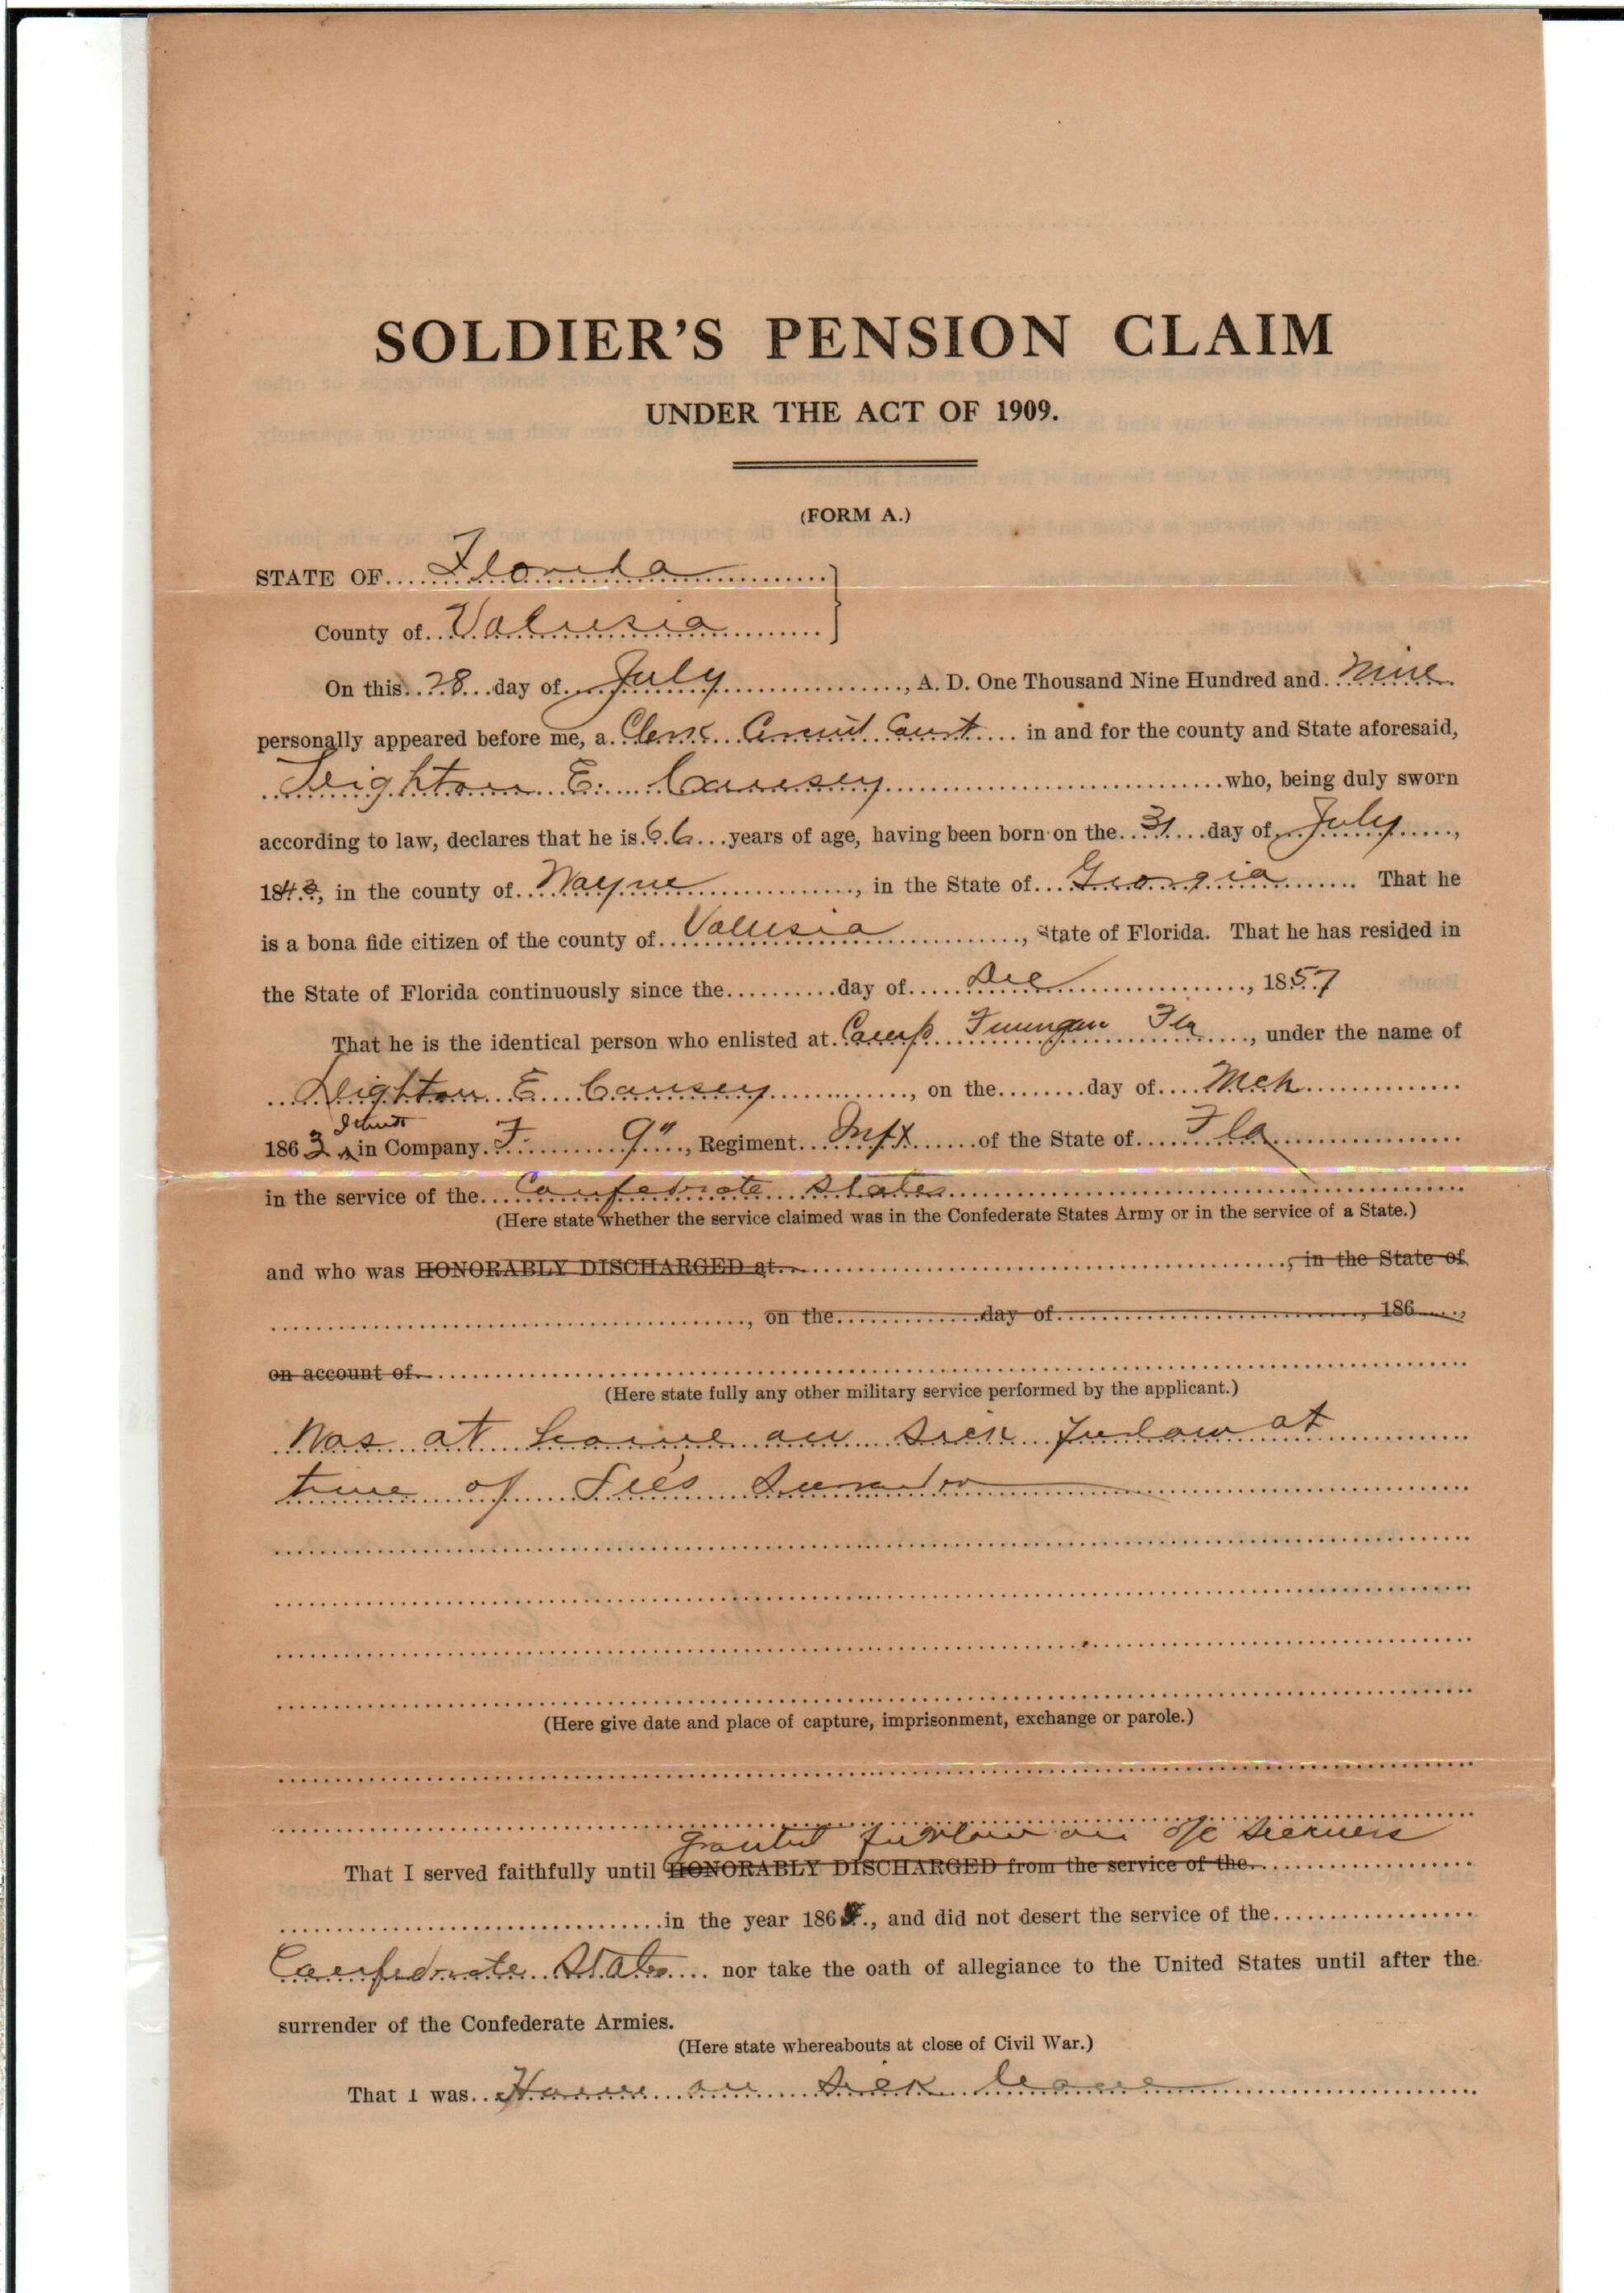 SOLDIER'S PENSION CLAIM
UNDER THE ACT OF 1909.
(FORM A.)
STATE OF Florida
County of Volusia
On this 28 day of July, A. D. One Thousand Nine Hundred and Nine
personally appeared before me, a Clerk Circuit Court in and for the county and State aforesaid,
Dighton E. Causey who, being duly sworn
according to law, declares that he is 66 years of age, having been born on the 31 day of July,
1843, in the county of Wayne, in the State of Georgia. That he
is a bona fide citizen of the county of Volusia, State of Florida. That he has resided in
the State of Florida continuously since the day of Dec, 1857
That he is the identical person who enlisted at Camp Finnigan Fla, under the name of
Dighton E Causey, on the day of Mch
1863 in Company F. 9", Regiment Inft of the State of Fla
in the service of the Confedrate States
(Here state whether the service claimed was in the Confederate States Army or in the service of a State.)
and who was HONORABLY DISCHARGED at, in the State of
, on the day of, 186,
on account of
(Here state fully any other military service performed by the applicant.)
Was at home on sick furlow at
time of Lee's Surender
(Here give date and place of capture, imprisonment, exchange or parole.)
granted furlow on a/c
That I served faithfully until HONORABLY DISCHARGED from the service of the
in the year 186, and did not desert the service of the
Confedrate States nor take the oath of allegiance to the United States until after the
surrender of the Confederate Armies.
(Here state whereabouts at close of Civil War.)
That I was Home on sick leave